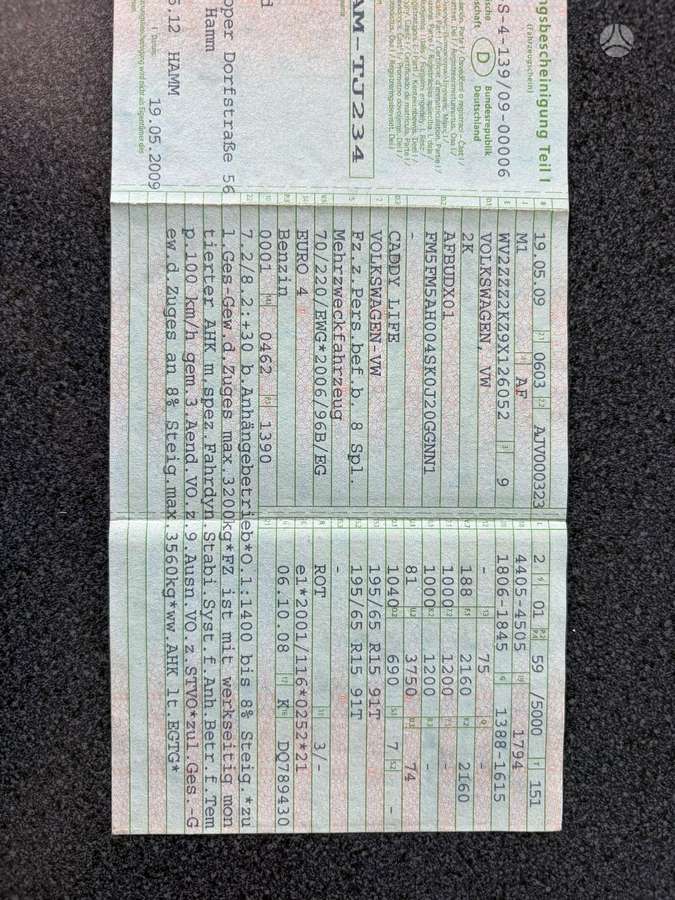 ngsbescheinigung Teil I
(Fahrzeugschein)
Bundesrepublik
Deutschland
D
S-4-139/09-00006
AM-TJ234
pper Dorfstraße 56
Hamm
5.12 HAMM
19.05.2009
19.05.09 0603 AJV000323
M1 AF
WV2ZZZ2KZ9X126052 9
VOLKSWAGEN, VW
2K
AFBUDX01
FM5FM5AH004SK0J20GGNN1
-
CADDY LIFE
VOLKSWAGEN-VW
Fz.z.Pers.bef.b. 8 Spl.
Mehrzweckfahrzeug
70/220/EWG*2006/96B/EG
EURO 4
Benzin
0001 0462 1390
2 01 59 /5000 151
4405-4505 1794
1806-1845 1388-1615
- 75 -
188 2160 2160
1000 1200 -
1000 1200 -
81 3750 74
1040 690 7 -
195/65 R15 91T
195/65 R15 91T
-
ROT 3/-
e1*2001/116*0252*21
06.10.08 K DQ789430
7.2/8.2:+30 b.Anhängebetrieb*O.1:1400 bis 8% Steig.*zu
l.Ges-Gew.d.Zuges max.3200kg*FZ ist mit werkseitig mon
tierter AHK m.spez.Fahrdyn.Stabi.Syst.f.Anh.Betr.f.Tem
p.100 km/h gem.3.Aend.VO.z.9.Ausn.VO.z.STVO*zul.Ges.-G
ew.d Zuges an 8% Steig.max.3560kg*ww.AHK lt.EGTG*